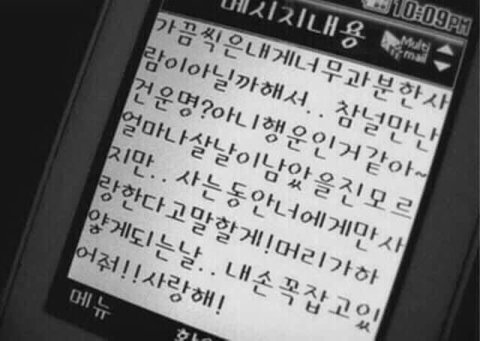 10:09PM
메시지내용
Multi
mail
가끔씩은내게너무과분한사
람이아닐까해서.. 참널만난
건운명?아니행운인거같아~
얼마나살날이남았을진모르
지만.. 사는동안너에게만사
랑한다고말할게!머리가하
얗게되는날.. 내손꼭잡고있
어줘!!사랑해!
메뉴